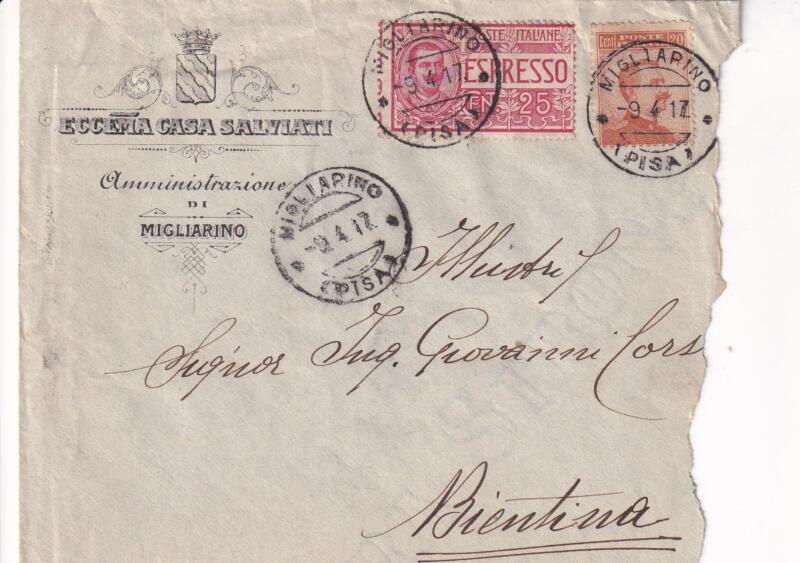 ECCEMA CASA SALVIATI
Amministrazione
DI
MIGLIARINO
POSTE ITALIANE
ESPRESSO
CENT. 25
MIGLIARINO
-9.4.17
(PISA)
Cent POSTE 20
MIGLIARINO
-9.4.17.
(PISA)
MIGLIARINO
-9.4.17.
(PISA)
Illustri
Signor Ing. Giovanni Cors
Bientina